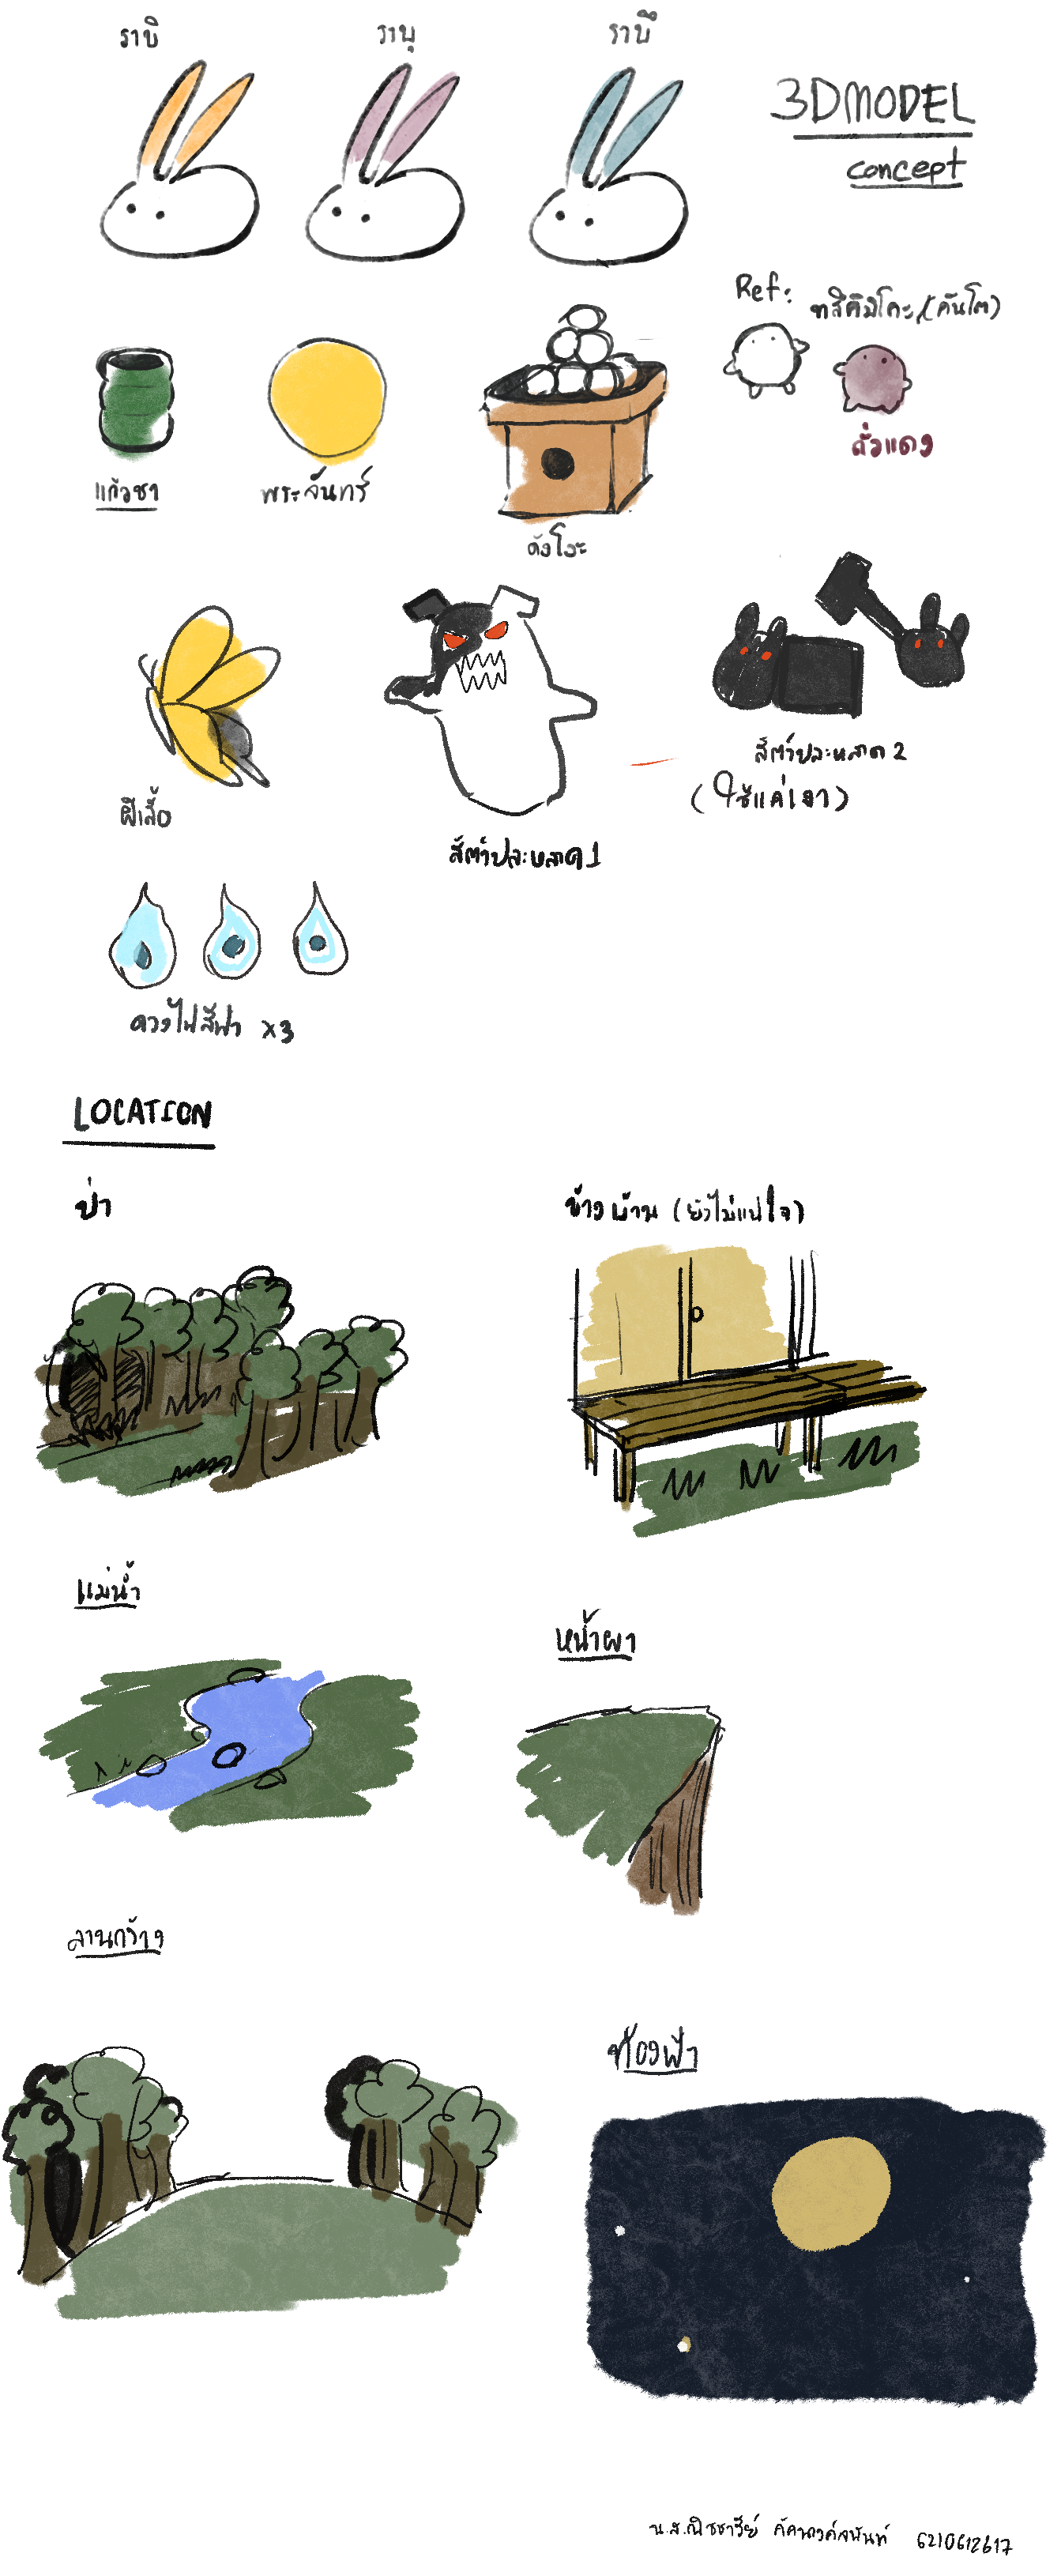 ราบิ
ราบุ
ราบี
3D MODEL
concept
Ref:
ทสึคิมิโดะ (คันโต)
ถั่วแดง
แก้วชา
พระจันทร์
ดังโงะ
ผีเสื้อ
สัตว์ประหลาด 1
สัตว์ประหลาด 2
(ใช้แค่เงา)
ดวงไฟสีฟ้า x3
LOCATION
ป่า
ข้างบ้าน (ยังไม่แน่ใจ)
แม่น้ำ
หน้าผา
ลานกว้าง
ท้องฟ้า
น.ส.ณิชชารีย์ 6210612617